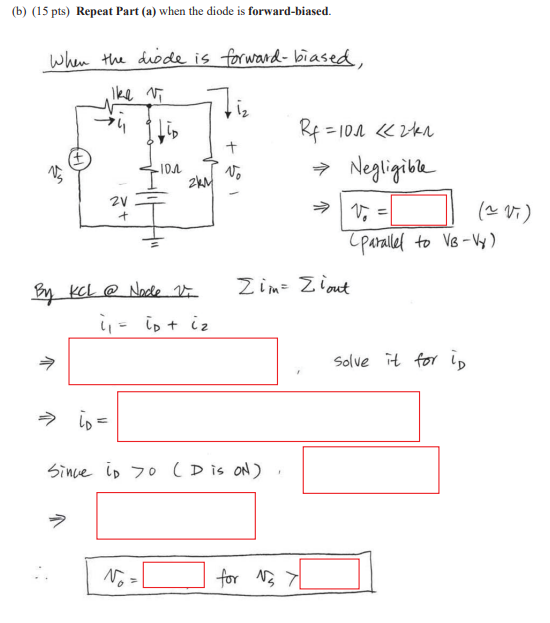 (b) (15 pts) Repeat Part (a) when the diode is forward-biased.
When the diode is forward-biased,
1kΩ V₁
i₁
i_D
i₂
+
10Ω
2kΩ
V₀
−
V_S
+
2V
+
R_f = 10Ω << 2kΩ
⇒ Negligible
⇒ V₀ = (≃ V₁)
(parallel to V_B - V_γ)
By KCL @ Node V₁ Σ i_in = Σ i_out
i₁ = i_D + i₂
⇒ , solve it for i_D
⇒ i_D =
Since i_D > 0 (D is ON) ,
⇒
∴ V₀ = for V_S >